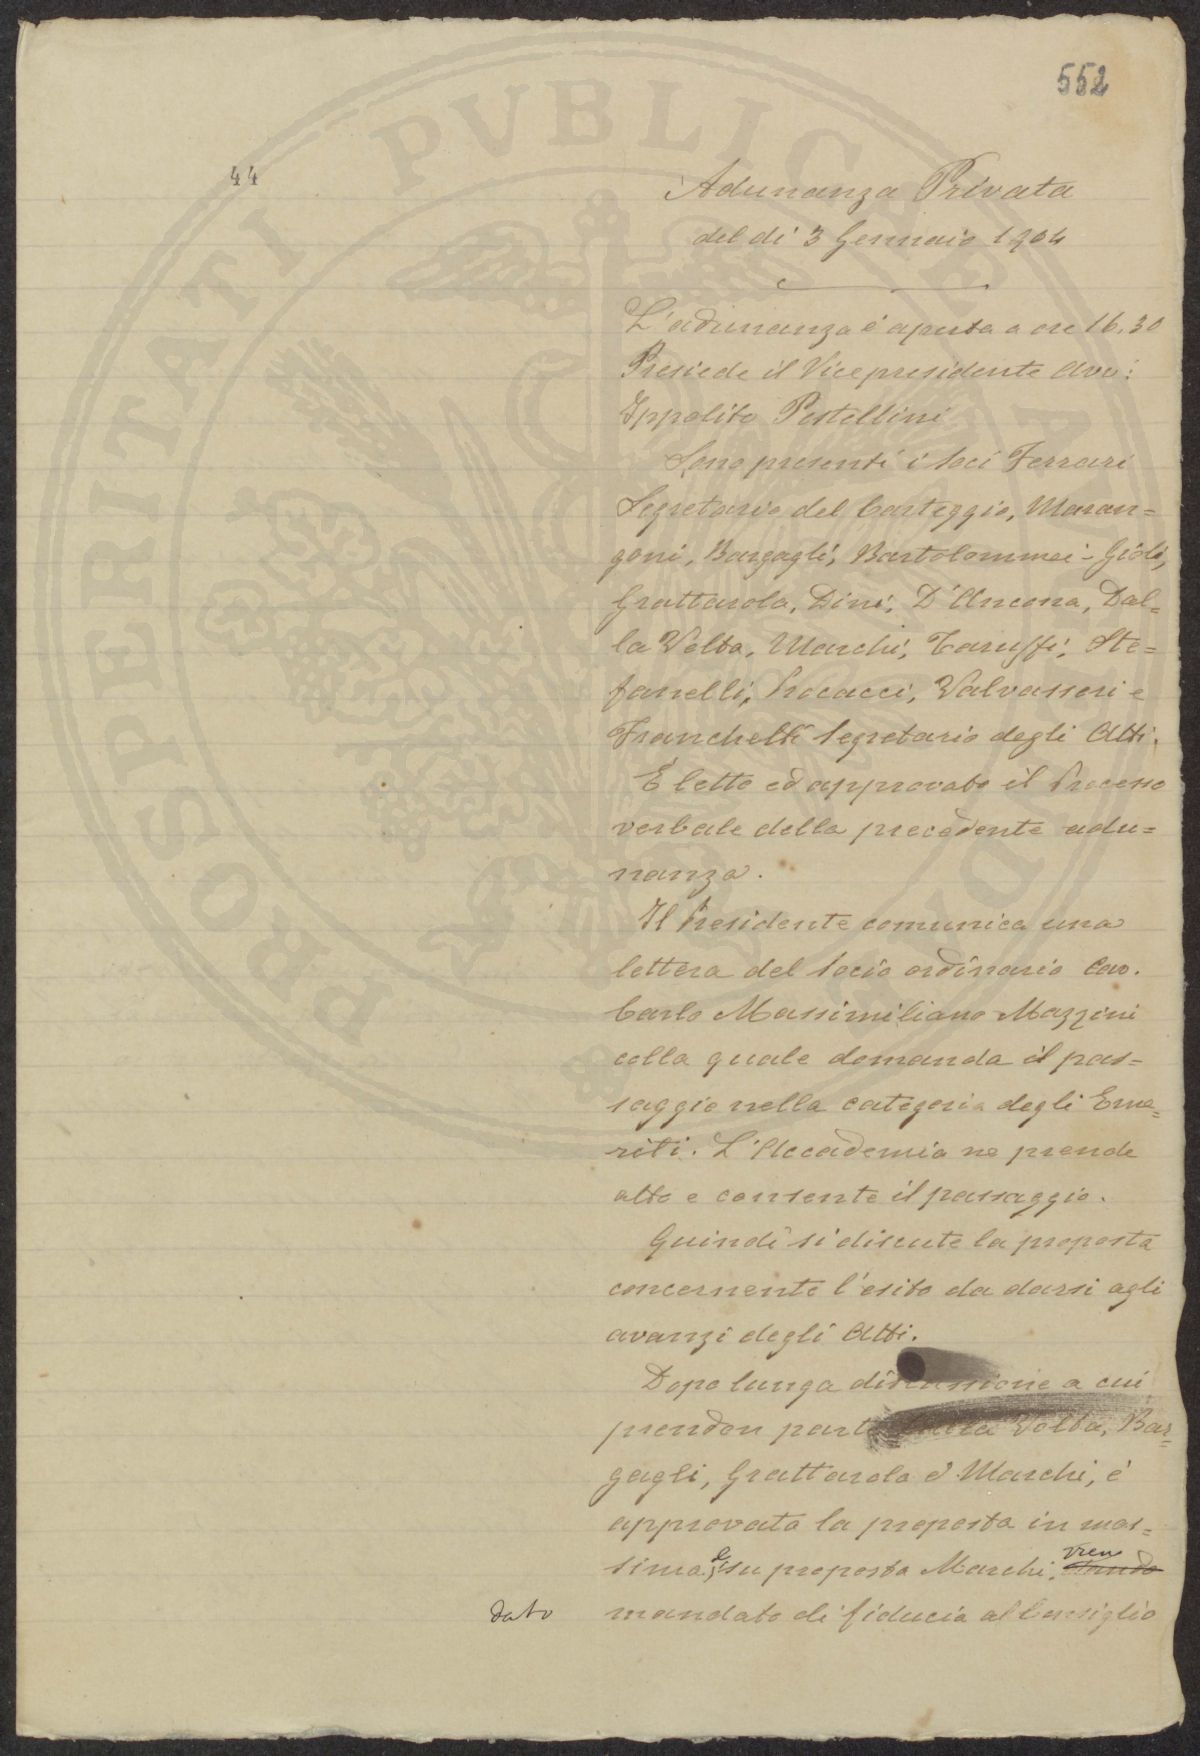 552
44
Adunanza Privata
del dì 3 Gennaio 1904
L'adunanza è aperta a ore 16,30
Presiede il Vicepresidente Avv:
Ippolito Pestellini
Sono presenti i Soci Ferrari
Segretario del Carteggio, Maran=
goni, Bargagli, Bartolommei-Gioli,
Grattarola, Dini, D'Ancona, Dal=
la Volta, Marchi, Taruffi, Ste=
fanelli, Procacci, Valvassori e
Franchetti Segretario degli Atti.
È letto ed approvato il Processo
verbale della precedente adu=
nanza.
Il Presidente comunica una
lettera del Socio ordinario Cav.
Carlo Massimiliano Mazzini
colla quale domanda il pas=
saggio nella categoria degli Eme=
riti. L'Accademia ne prende
atto e consente il passaggio.
Quindi si discute la proposta
concernente l'esito da darsi agli
avanzi degli Atti.
Dopo lunga discussione a cui
prendon parte Dalla Volta, Bar=
gagli, Grattarola e Marchi, è
approvata la proposta in mas=
sima, e su proposta Marchi, vien dando
dato mandato di fiducia al Consiglio
PROSPERITATI PVBLICAE AVGENDAE